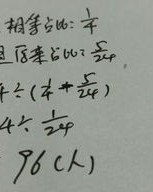 相等占比: 1/4
原来占比: 5/24
4÷(1/4 - 5/24)
4÷ 1/24
96(人)